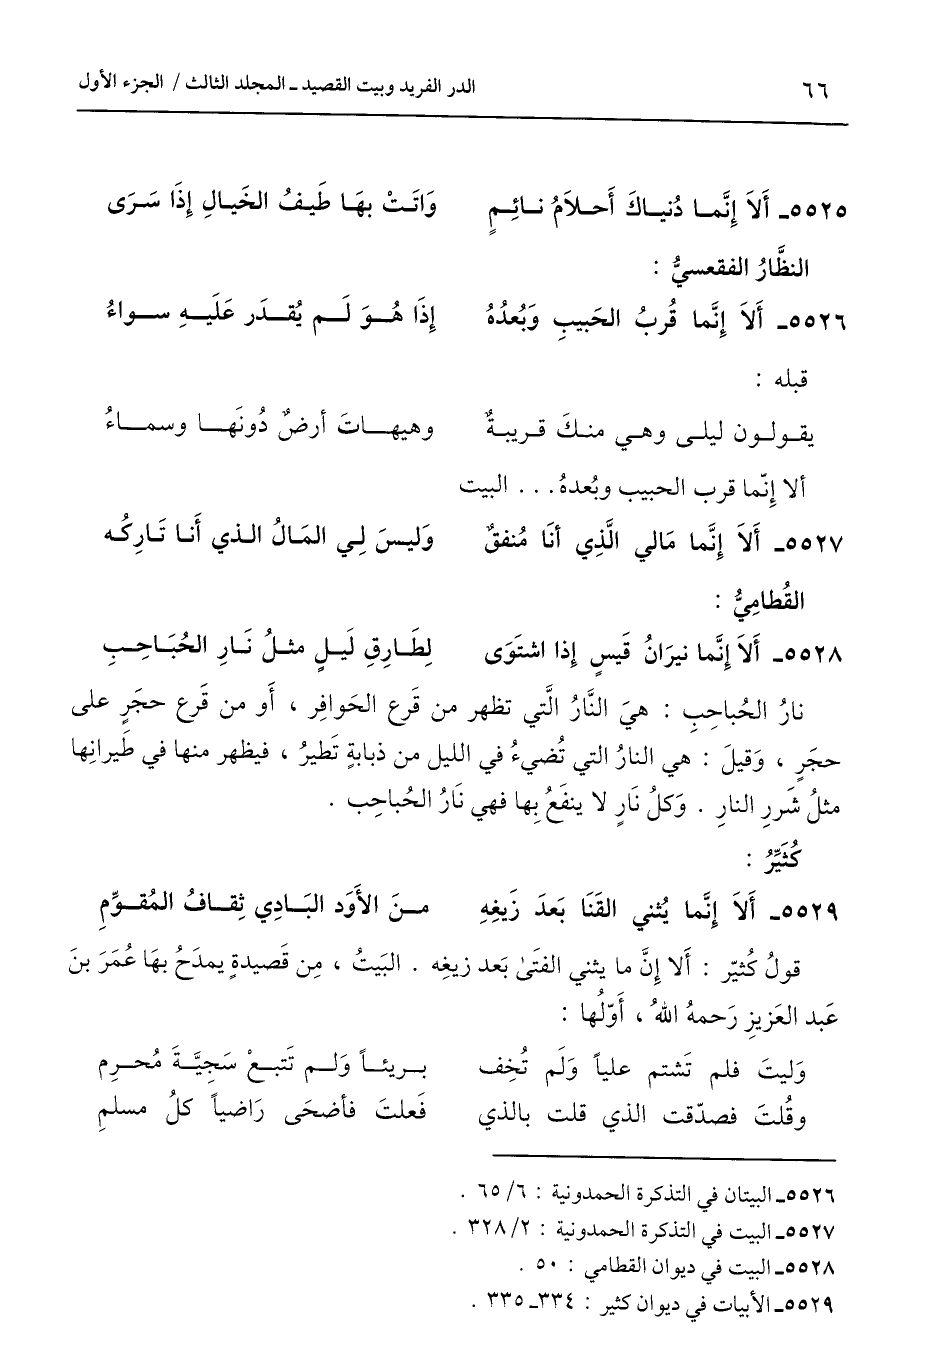 ٦٦ الدر الفريد وبيت القصيد ـ المجلد الثالث / الجزء الأول
٥٥٢٥ـ أَلاَ إِنَّمـا دُنيـاكَ أَحـلاَمُ نـائِـمٍ وَاتَـتْ بِهَـا طَيـفُ الخَيـالِ إِذَا سَـرَى
النظَّارُ الفقعسيُّ :
٥٥٢٦ـ أَلاَ إِنَّما قُربُ الحَبيبِ وَبُعدُهُ إِذَا هُـوَ لَـم يُقـدَر عَلَيـهِ سـواءُ
قبله :
يقـولـون ليلـى وهـي منـكَ قـريبـةٌ وهيهـاتَ أرضٌ دُونَهـا وسمـاءُ
ألا إنّما قرب الحبيب وبُعدهُ . . . البيت
٥٥٢٧ـ أَلاَ إِنَّما مَالي الَّذِي أنَا مُنفقٌ وَليسَ لِي المَالُ الذي أَنا تَارِكُه
القُطامِيُّ :
٥٥٢٨ـ أَلاَ إِنَّما نيرَانُ قَيسٍ إذا اشتَوَى لِطَـارِقِ لَيـلٍ مثـلُ نَـارِ الحُبَـاحِـبِ
نارُ الحُباحِبِ : هيَ النَّارُ الَّتي تظهر من قرع الحَوافِر ، أَو من قَرع حجَرٍ على
حجَرٍ ، وَقيلَ : هي النارُ التي تُضيءُ في الليل من ذبابةٍ تَطيرُ ، فيظهر منها في طَيرانِها
مثلُ شَررِ النارِ . وَكلُ نَارٍ لا ينفَعُ بِها فهي نَارُ الحُباحِب .
كُثَيِّرُ :
٥٥٢٩ـ أَلاَ إِنَّما يُثني القَنَا بَعدَ زَيغِهِ مـنَ الأَوَد البَـادِي ثِقـافُ المُقـوِّمِ
قولُ كُثيّر : أَلا إنَّ ما يثني الفتَىٰ بَعد زيغِه . البَيتُ ، مِن قَصيدةٍ يمدَحُ بهَا عُمَرَ بنَ
عَبد العَزيزِ رَحمهُ اللهُ ، أَوّلُها :
وَليتَ فلم تَشتم علياً وَلَم تُخِف بـريئـاً وَلـم تَتبـعْ سَجيَّـةَ مُحـرِمِ
وقُلتَ فصدّقت الذي قلت بالذي فَعلتَ فأضحَى رَاضياً كلُ مسلمِ
٥٥٢٦ـ البيتان في التذكرة الحمدونية : ٦/ ٦٥ .
٥٥٢٧ـ البيت في التذكرة الحمدونية : ٢/ ٣٢٨ .
٥٥٢٨ـ البيت في ديوان القطامي : ٥٠ .
٥٥٢٩ـ الأبيات في ديوان كثير : ٣٣٤ـ ٣٣٥ .